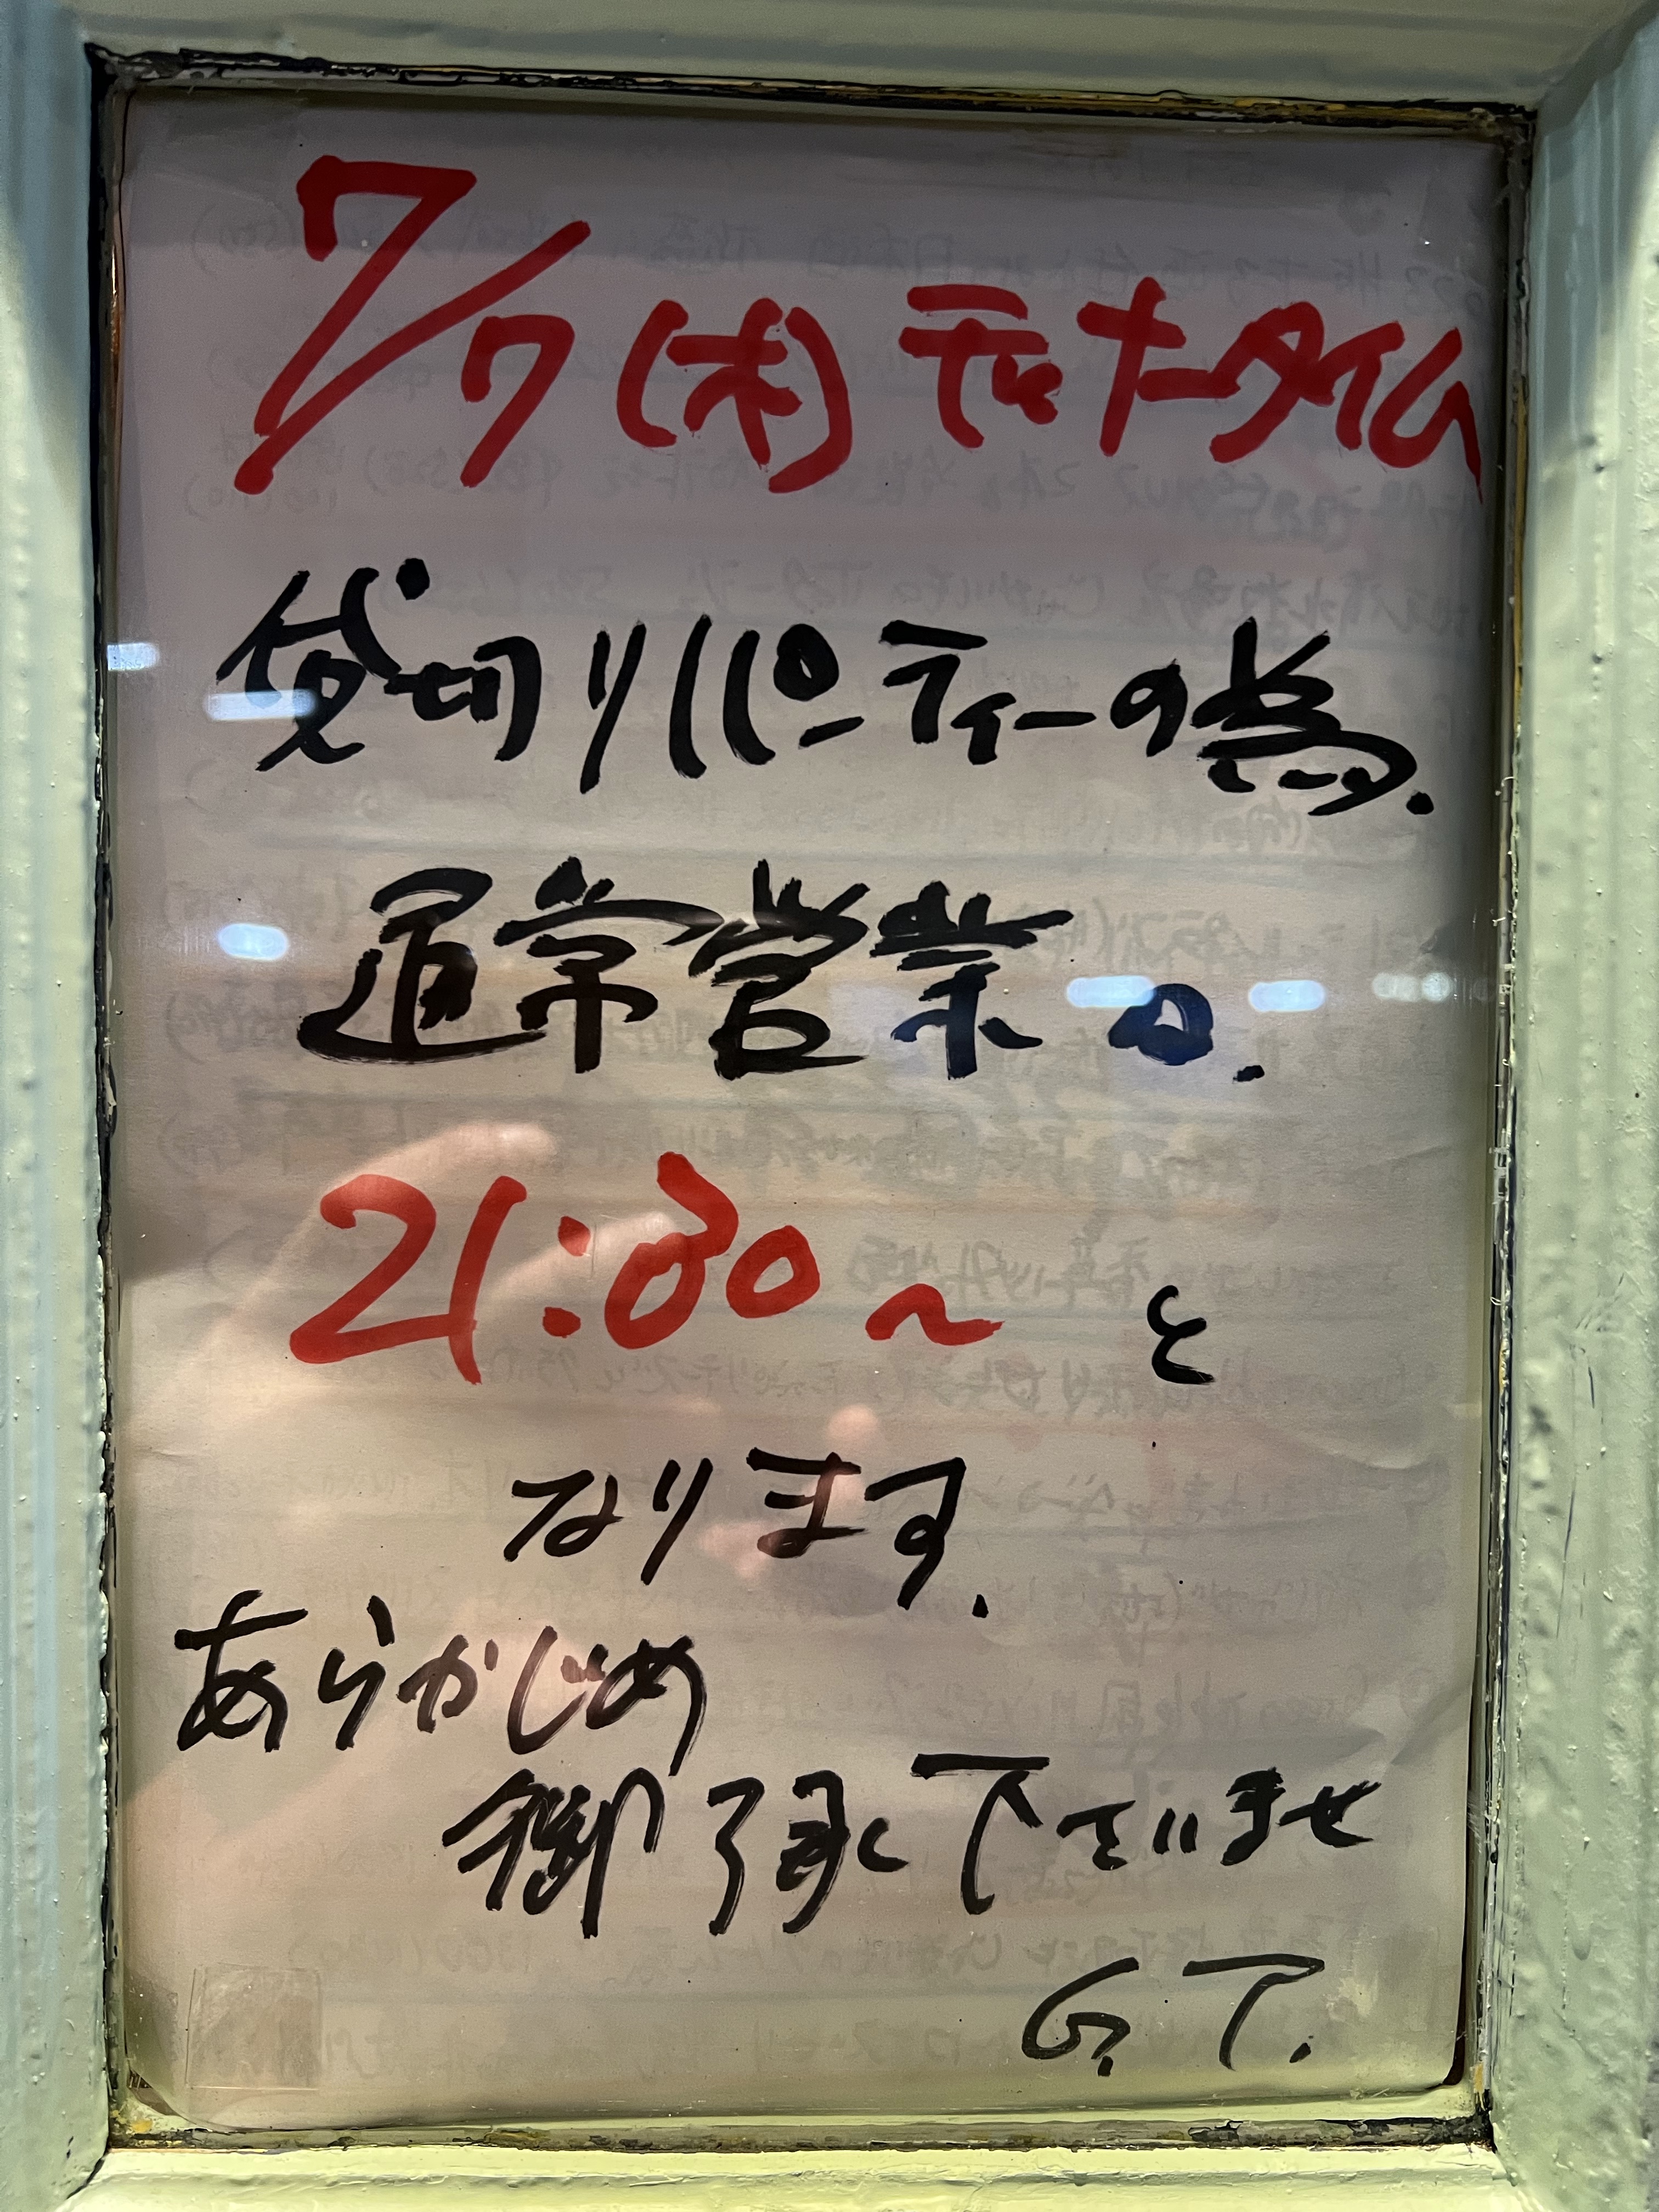 7/7(木)ディナータイム
貸切りパーティーの為.
通常営業は.
21:30～と
なります.
あらかじめ
御了承下さいませ
G.T.